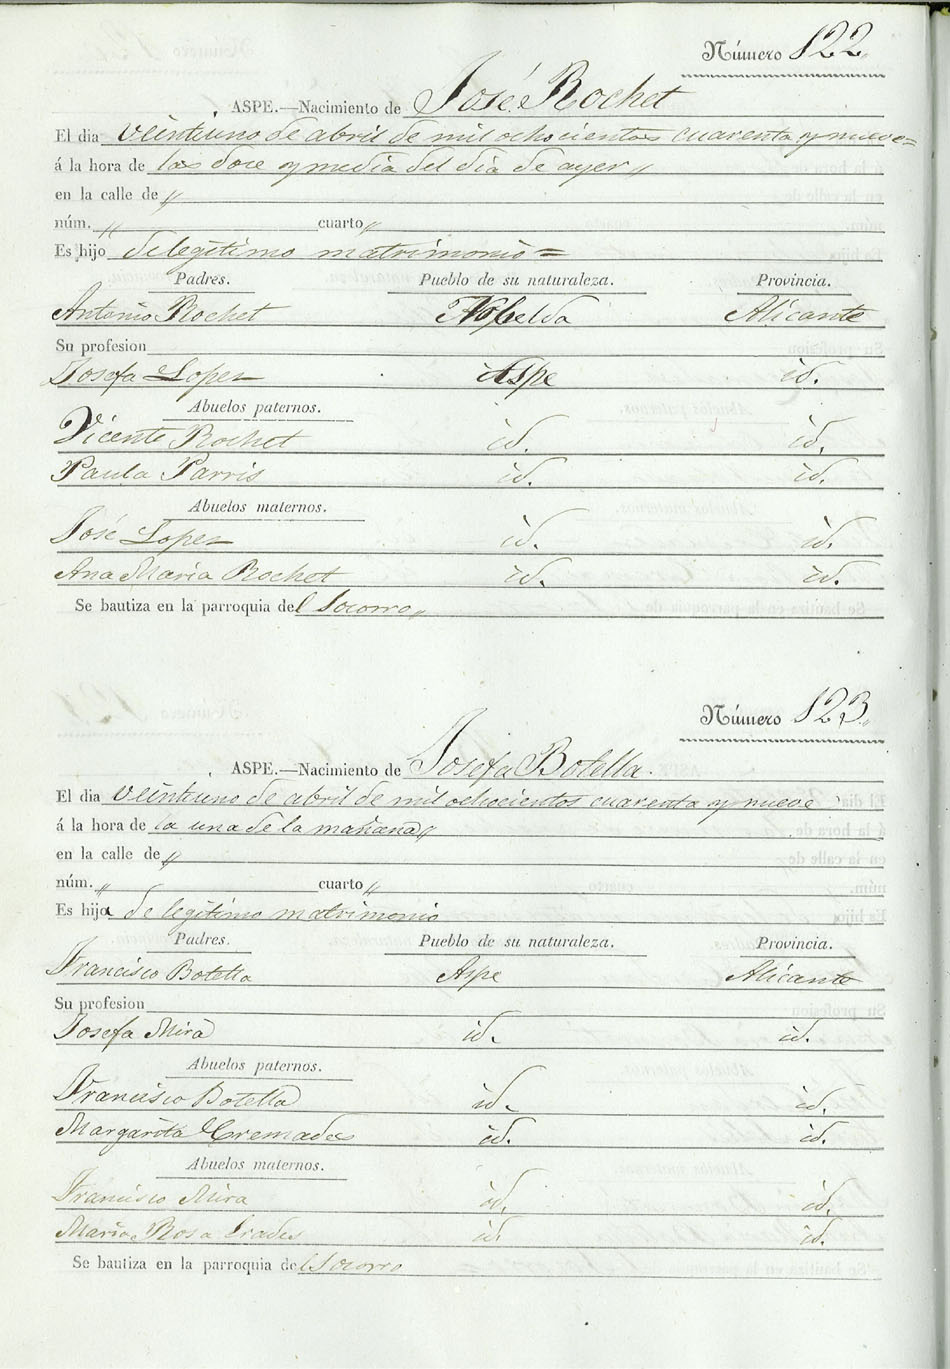 Número 122.
ASPE.—Nacimiento de José Rochet
El dia veintiuno de abril de mil ochocientos cuarenta y nueve=
á la hora de las doce y media del dia de ayer "
en la calle de "
núm. " cuarto "
Es hijo de legitimo matrimonio =
Padres. Pueblo de su naturaleza. Provincia.
Antonio Rochet Alicante
Su profesion
Josefa Lopez Aspe id.
Abuelos paternos.
Vicente Rochet id. id.
Paula Parris id. id.
Abuelos maternos.
José Lopez id. id.
Ana Maria Rochet id. id.
Se bautiza en la parroquia del Socorro "
Número 123.
ASPE.—Nacimiento de Josefa Botella.
El dia veintiuno de abril de mil ochocientos cuarenta y nueve
á la hora de la una de la mañana "
en la calle de "
núm. " cuarto "
Es hija de legitimo matrimonio
Padres. Pueblo de su naturaleza. Provincia.
Francisco Botella Aspe Alicante
Su profesion
Josefa Mira id. id.
Abuelos paternos.
Francisco Botella id. id.
Margarita Cremades id. id.
Abuelos maternos.
Francisco Mira id. id.
Maria Rosa id. id.
Se bautiza en la parroquia del Socorro